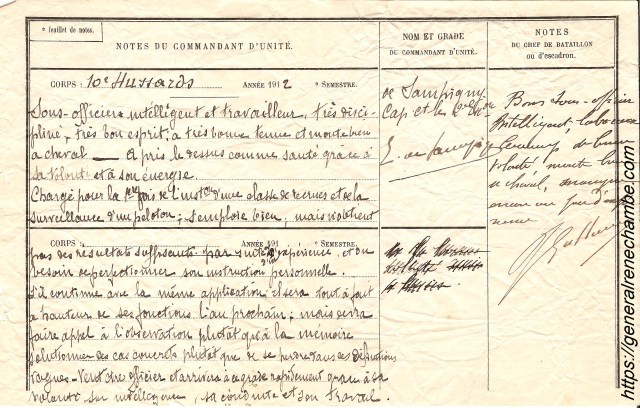 * feuillet de notes.
NOTES DU COMMANDANT D'UNITÉ.
NOM ET GRADE
DU COMMANDANT D'UNITÉ.
NOTES
DU CHEF DE BATAILLON
ou d'escadron.
CORPS : 10e Hussards ANNÉE 1912 * SEMESTRE.
Sous-officier intelligent et travailleur, très disci-
pliné, très bon esprit, a très bonne tenue et monte bien
a cheval — A pris le dessus comme santé grâce à
sa volonté et à son énergie.
Chargé pour la 1ère fois de l'inston d'une classe de recrues et de la
surveillance d'un peloton ; s'emploie bien, mais n'obtient
CORPS : ANNÉE 191 * SEMESTRE.
pas des resultats suffisants par suite d'inexpérience, et a
besoin de perfectionner son instruction personnelle.
S'il continue avec la même application il sera tout à fait
a hauteur de ses fonctions l'an prochain ; mais devra
faire appel à l'observation plutôt qu'à la mémoire
solutionner des cas concrets plutôt que de se perdre dans des définitions
vagues - Veut être officier et arrivera à ce grade rapidement grâce à sa
volonté son intelligence, sa conduite et son travail.
de Sampigny
Cap et le 2e Eon
Bon Sous-officier
Intelligent, laborieux
beaucoup de bonne
volonté monte bien
à cheval, manque
encore un peu d'
https://generalrenechambe.com/